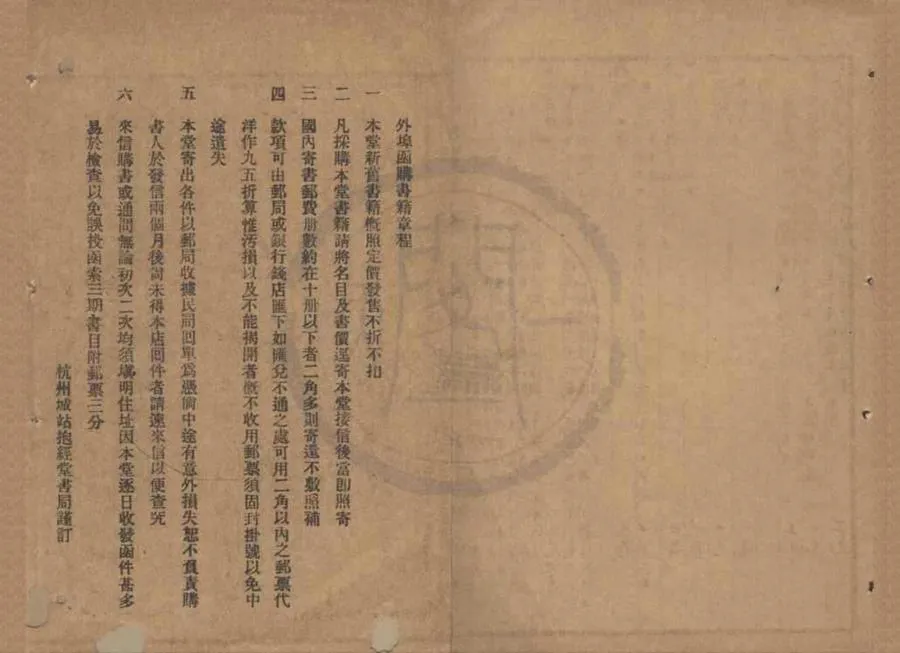 外埠函購書籍章程
一 本堂新舊書籍槪照定價發售不折不扣
二 凡採購本堂書籍請將名目及書價逕寄本堂接信後當卽照寄
三 國內寄書郵費册數約在十册以下者二角多則寄還不敷照補
四 款項可由郵局或銀行錢店匯下如匯兌不通之處可用二角以內之郵票代
洋作九五折算惟汚損以及不能揭開者槪不收用郵票須固封掛號以免中
途遺失
五 本堂寄出各件以郵局收據民局回單爲憑倘中途有意外損失恕不負責購
書人於發信兩個月後尙未得本店回件者請速來信以便查究
六 來信購書或通問無論初次二次均須塡明住址因本堂逐日收發函件甚多
易於檢查以免誤投函索三期書目附郵票三分
杭州城站抱經堂書局謹訂